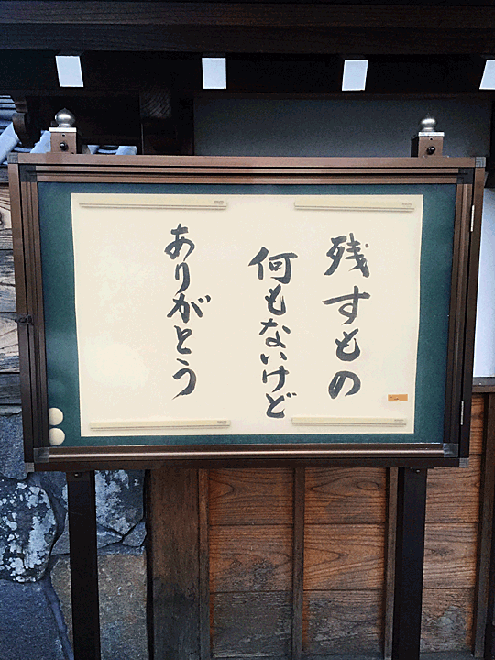 残すもの
何もないけど
ありがとう